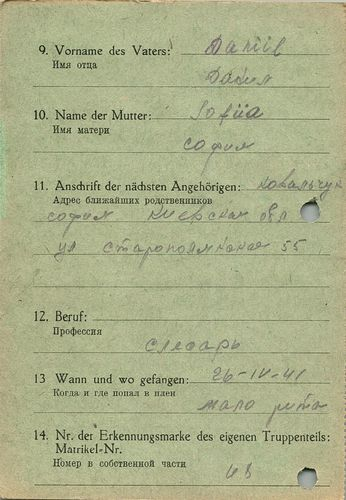 9. Vorname des Vaters: Daniil
Имя отца
Данил
10. Name der Mutter: Sofiia
Имя матери
софия
11. Anschrift der nächsten Angehörigen: Ковальчук
Адрес ближайших родственников
софия Киевская обл
ул 55
12. Beruf:
Профессия
слесарь
13 Wann und wo gefangen: 26-IV-41
Когда и где попал в плен
14. Nr. der Erkennungsmarke des eigenen Truppenteils:
Matrikel-Nr.
Номер в собственной части